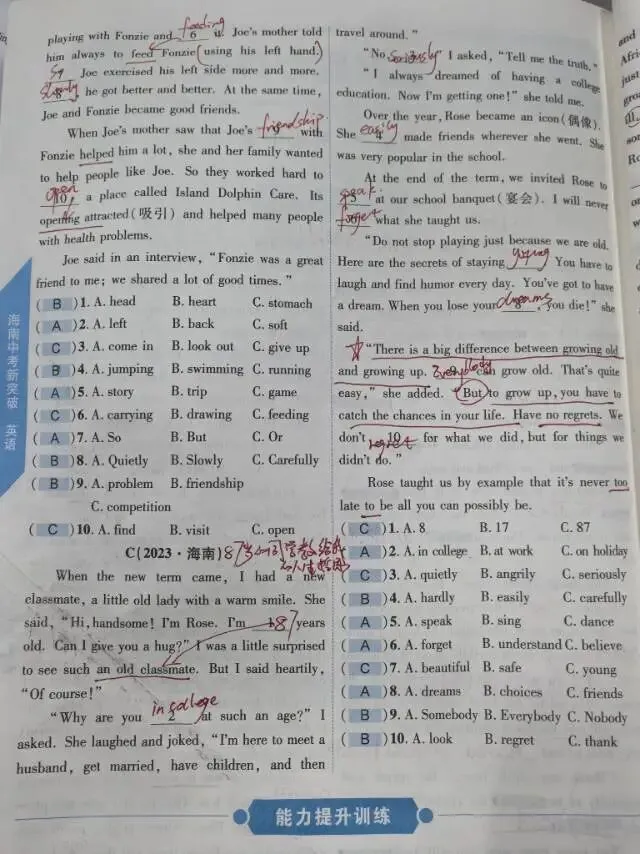 playing with Fonzie and 6 feeding it. Joe's mother told
him always to feed Fonzie (using his left hand.)
So Joe exercised his left side more and more.
Slowly 8 he got better and better. At the same time,
Joe and Fonzie became good friends.
When Joe's mother saw that Joe's friendship with
Fonzie helped him a lot, she and her family wanted
to help people like Joe. So they worked hard to
open 10, a place called Island Dolphin Care. Its
opening attracted(吸引) and helped many people
with health problems.
Joe said in an interview, "Fonzie was a great
friend to me; we shared a lot of good times."
( B )1. A. head B. heart C. stomach
( A )2. A. left B. back C. soft
( C )3. A. come in B. look out C. give up
( B )4. A. jumping B. swimming C. running
( A )5. A. story B. trip C. game
( C )6. A. carrying B. drawing C. feeding
( A )7. A. So B. But C. Or
( B )8. A. Quietly B. Slowly C. Carefully
( B )9. A. problem B. friendship
C. competition
( C )10. A. find B. visit C. open
C(2023·海南)
When the new term came, I had a new
classmate, a little old lady with a warm smile. She
said, "Hi, handsome! I'm Rose. I'm 87 years
old. Can I give you a hug?" I was a little surprised
to see such an old classmate. But I said heartily,
"Of course!"
"Why are you 2 in college at such an age?" I
asked. She laughed and joked, "I'm here to meet a
husband, get married, have children, and then
travel around."
"No, seriously" I asked, "Tell me the truth."
"I always dreamed of having a college
education. Now I'm getting one!" she told me.
Over the year, Rose became an icon(偶像).
She easily 4 made friends wherever she went. She
was very popular in the school.
At the end of the term, we invited Rose to
speak 5 at our school banquet(宴会). I will never
forget what she taught us.
"Do not stop playing just because we are old.
Here are the secrets of staying young You have to
laugh and find humor every day. You've got to have
a dream. When you lose your dreams, you die!" she
said.
"There is a big difference between growing old
and growing up. Everybody can grow old. That's quite
easy," she added. "But to grow up, you have to
catch the chances in your life. Have no regrets. We
don't 10 regret for what we did, but for things we
didn't do."
Rose taught us by example that it's never too
late to be all you can possibly be.
( C )1. A. 8 B. 17 C. 87
( A )2. A. in college B. at work C. on holiday
( C )3. A. quietly B. angrily C. seriously
( B )4. A. hardly B. easily C. carefully
( A )5. A. speak B. sing C. dance
( A )6. A. forget B. understand C. believe
( C )7. A. beautiful B. safe C. young
( A )8. A. dreams B. choices C. friends
( B )9. A. Somebody B. Everybody C. Nobody
( B )10. A. look B. regret C. thank
能力提升训练
海南中考新突破 英语